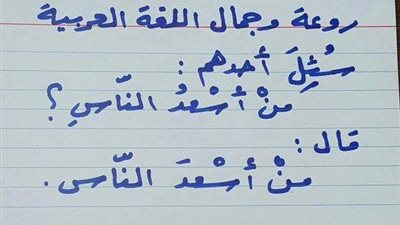 روعة وجمال اللغة العربية
سُئِلَ أحدهم :
مَنْ أَسْعدُ النّاسِ ؟
قال :
مَنْ أسْعدَ النّاس .